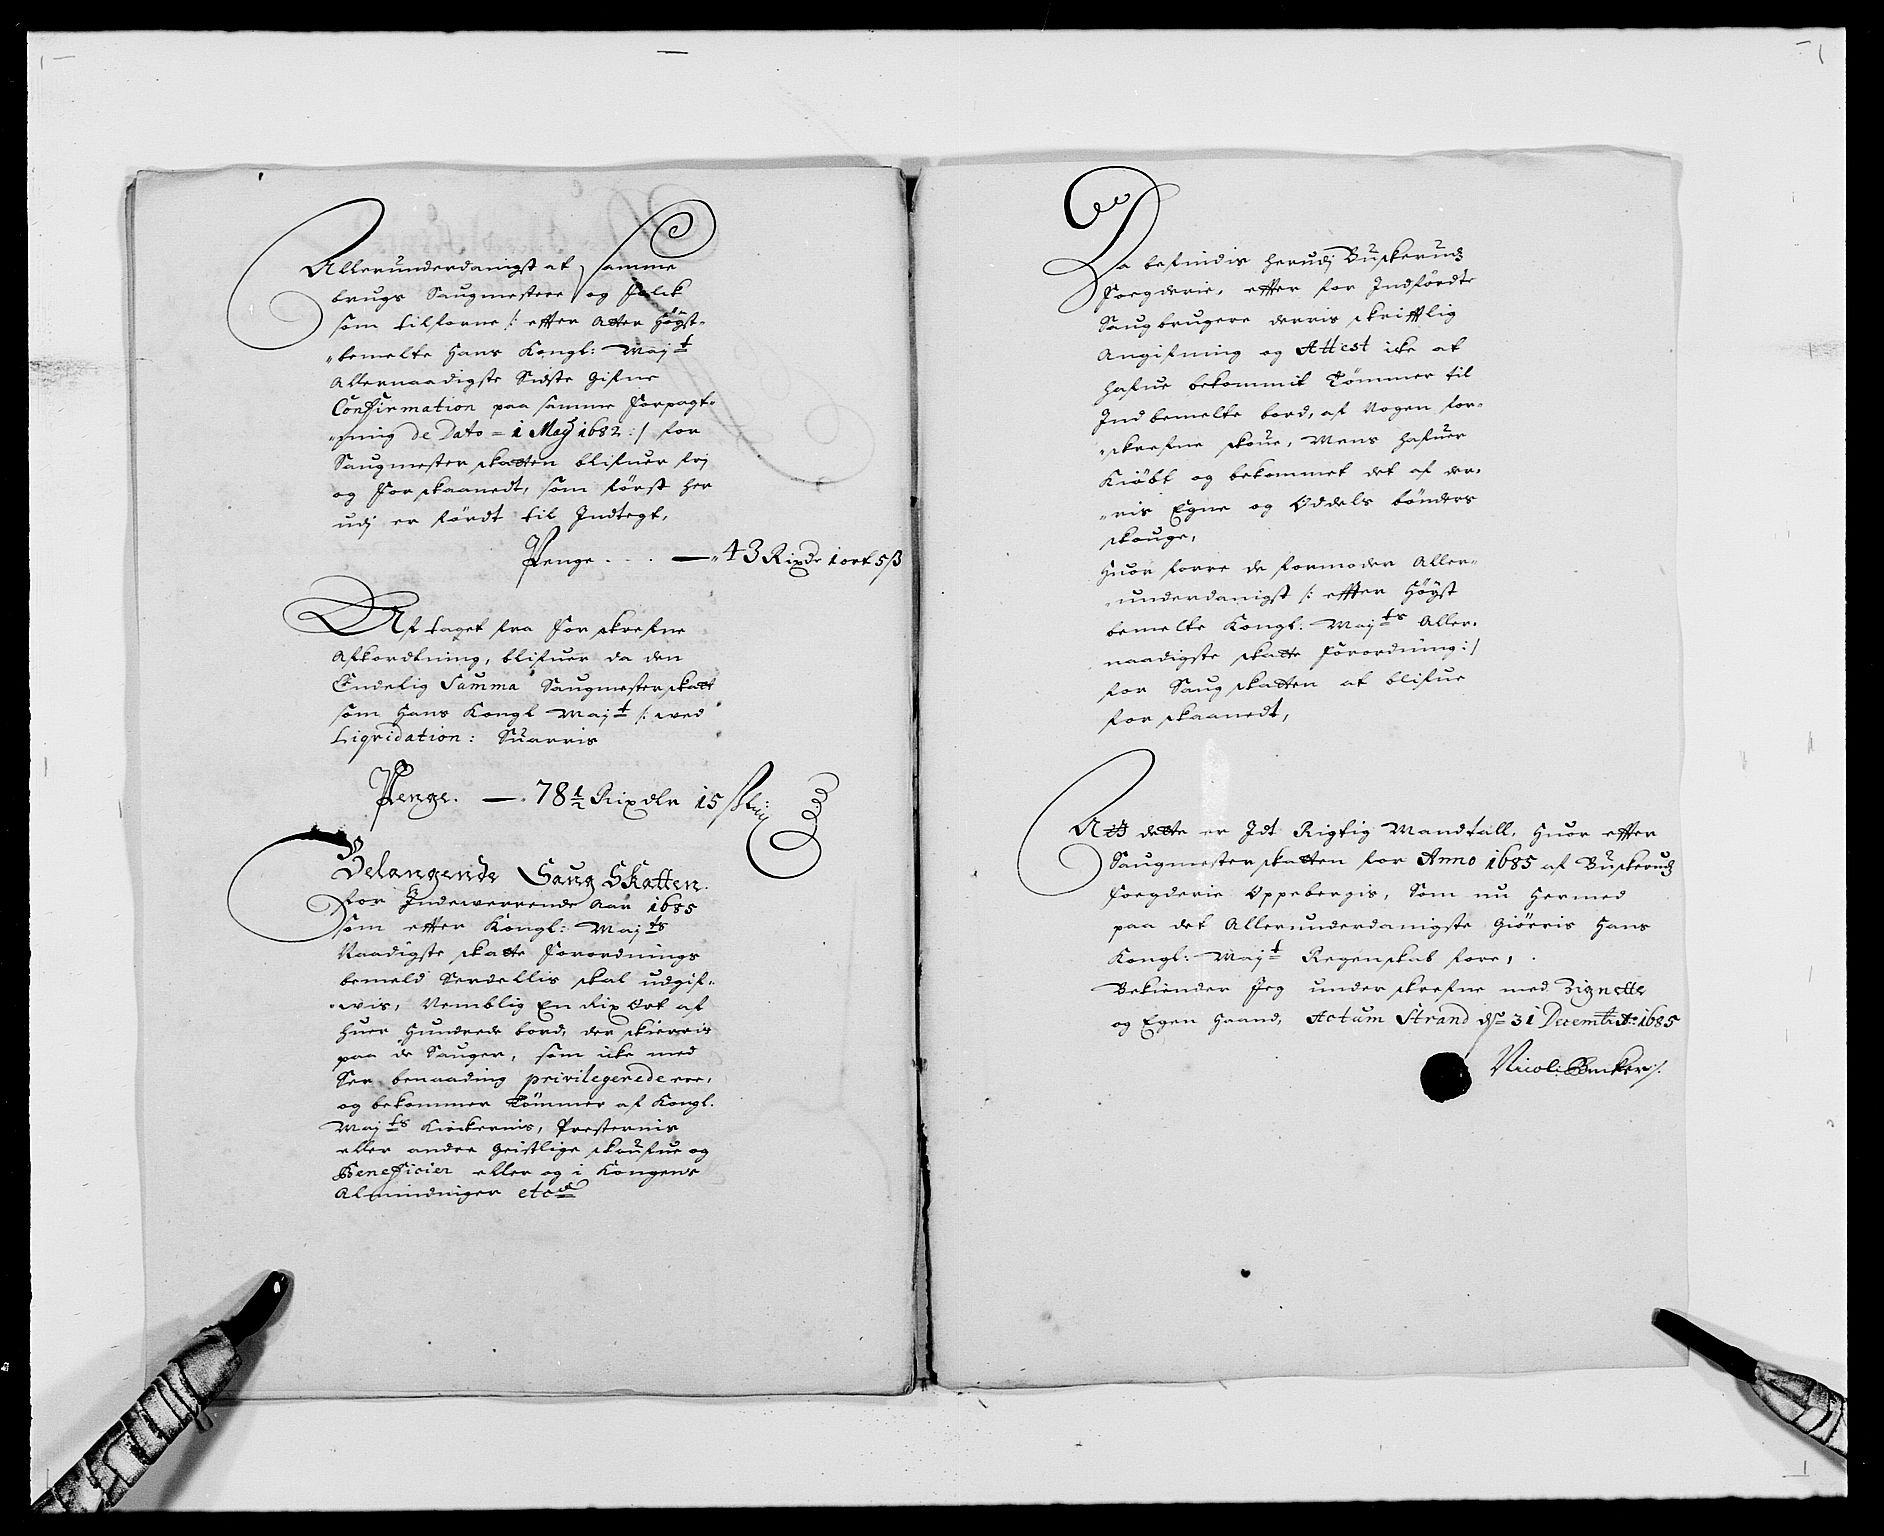 Allerunderdanigst at samme
brugs Saugmestere og Folck
som tilforne /: efter Atter Høyst-
"bemelte Hans Kongl: Maj.t
Allernaadigste Sidste Gifne
Confirmation paa samme Forpagt-
"ning de Dato = 1 Maÿ 1682 :/ for
Saugmester skatten blifuer frj
og Forskaanedt, som først her
udj er ført til Indtegt,
Penge . . . — "43 Rixdr 1 ort 5 ß
Aftaget fra Forskrefne
Afkordtning, blifuer da den
Endelig Summa Saugmester skatt
som Hans Kongl Maj.t /: wed
Liqvidation: Suarris
Penge. — . 78 1/2 Rixdlr 15 ß
Belangende Saug Skatten.
for Indewerrende Aar 1685
som efter Kongl: Maj.ts
Naadigste skatte Forordnings
bemeld Serdellis skal udgif-
"wis, Nemblig En Rix Ort af
Huer Hundrede bord, der skierris
paa de Sauger, som icke med
Ser benaading privilegerede ere,
og bekommer Tømmer af Kongl.
Maj.ts Kirckernis, Presternis
eller andre Geistlige skoufue og
Beneficier eller og i Kongens
Almindinger etc.
Da befindis herudj Buskeruds
Foegderie, efter for Indførdte
Saugbrugere derris skrifftlig
Angifning og Attest icke at
hafue bekommit Tømmer til
Indbemelte bord, af Nogen for-
"skrefne skoue, Mens hafuer
Kiøbt og bekommet det af der-
"ris Egne og Oddels bønders
skouge,
Huor forre de formoder Aller-
"underdanigst /: effter Høyst
bemelte Kongl. Maj.ts Aller-
naadigste skatte Forordning :/
for Saug skatten at blifue
forskaanedt,
At dette er Idt Rigtig Mandtall, Huor efter
Saugmester skatten for Anno 1685 af Buskeruds
Foegderie Oppebergis, Som nu Hermed
paa det Allerunderdanigste Giørris Hans
Kongl: Maj.t Regenskab fore,
Bekiender Jeg underskrefne med Zignette
og Egen Haand, Actum Strand d. 31 Decemb: Ao 1685